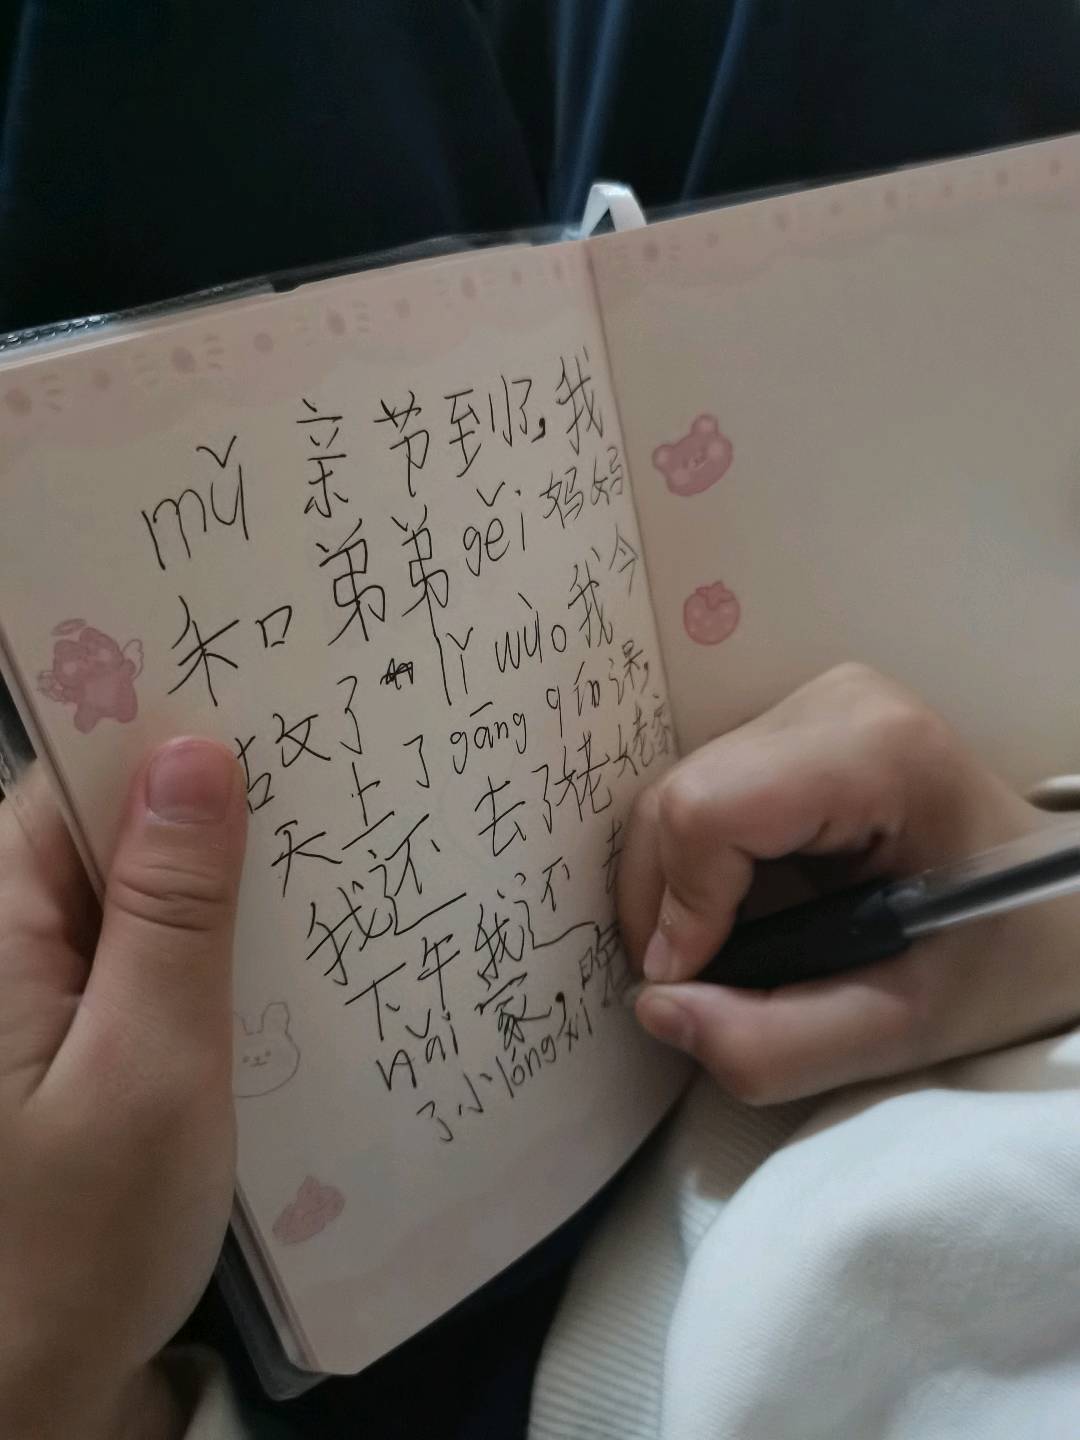 mǔ 亲节到了,我
和弟弟gěi妈妈
故了lǐ wù。我今
天上了gāng qín课,
我还去了姥姥家
下午我还去
nǎi家,晚
了小lóngxi